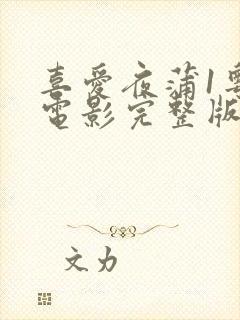 喜愛夜蒲1粵
電影完整版
文力